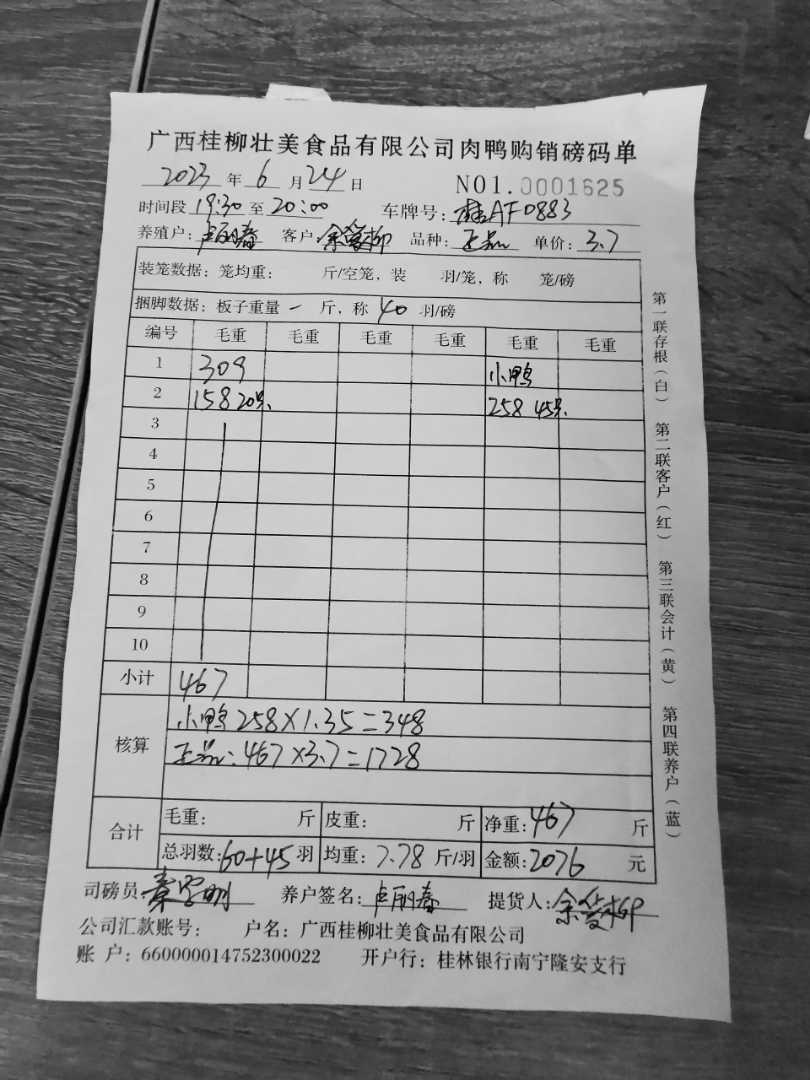 广西桂柳壮美食品有限公司肉鸭购销磅码单
2023 年 6 月 24 日 NO1.0001625
时间段 19:30 至 20:00 车牌号: 桂AF0883
养殖户: 卢丽春 客户: 品种: 正品 单价: 3.7
装笼数据: 笼均重: 斤/空笼, 装 羽/笼, 称 笼/磅
捆脚数据: 板子重量 一 斤, 称 40 羽/磅
编号 毛重 毛重 毛重 毛重 毛重 毛重
1 309 小鸭
2 158 20只、 258 45只、
3
4
5
6
7
8
9
10
小计 467
核算 小鸭258×1.35=348
正品:467×3.7=1728
合计 毛重: 斤 皮重: 斤 净重: 467 斤
总羽数: 60+45 羽 均重: 7.78 斤/羽 金额: 2076 元
司磅员: 养户签名: 卢丽春 提货人:
公司汇款账号: 户名: 广西桂柳壮美食品有限公司
账 户: 660000014752300022 开户行: 桂林银行南宁隆安支行
第一联存根(白) 第二联客户(红) 第三联会计(黄) 第四联养户(蓝)